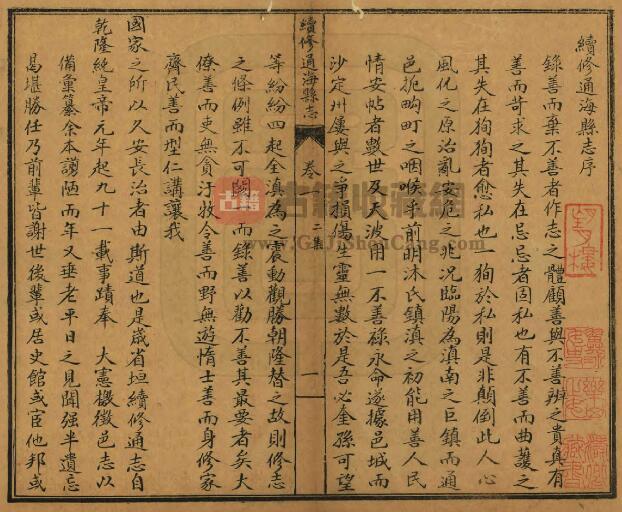 續修通海縣志序
錄善而棄不善者作志之體顧善與不善辨之貴真有
善而苛求之其失在忌忌者固私也有不善而曲護之
其失在狥狥者愈私也一狥於私則是非顛倒此人心
風化之原治亂安危之兆況臨陽為滇南之巨鎮而通
邑扼畇町之咽喉乎前明沐氏鎮滇之初能用善人民
情安帖者數世及天波用一不善祿永命遂據邑城而
沙定州屢與之爭損傷生靈無數於是吾必奎孫可望
續修通海縣志
卷
二集
一
等紛紛四起全滇為之震動觀勝朝隆替之故則修志
之條例雖不可 而錄善以勸不善其最要者矣大
僚善而吏無貪汙牧令善而野無遊惰士善而身修家
齊民善而型仁講讓我
國家之所以久安長治者由斯道也歲省垣續修通志自
乾隆純皇帝元年起九十一載事蹟奉 大憲檄徵邑志以
備彙纂余本謭陋而年又垂老平日之見聞強半遺忘
曷堪勝任乃前輩皆謝世後輩或居史館或宦他邦或
古籍
古籍收藏網
www.GuJiShouCang.com